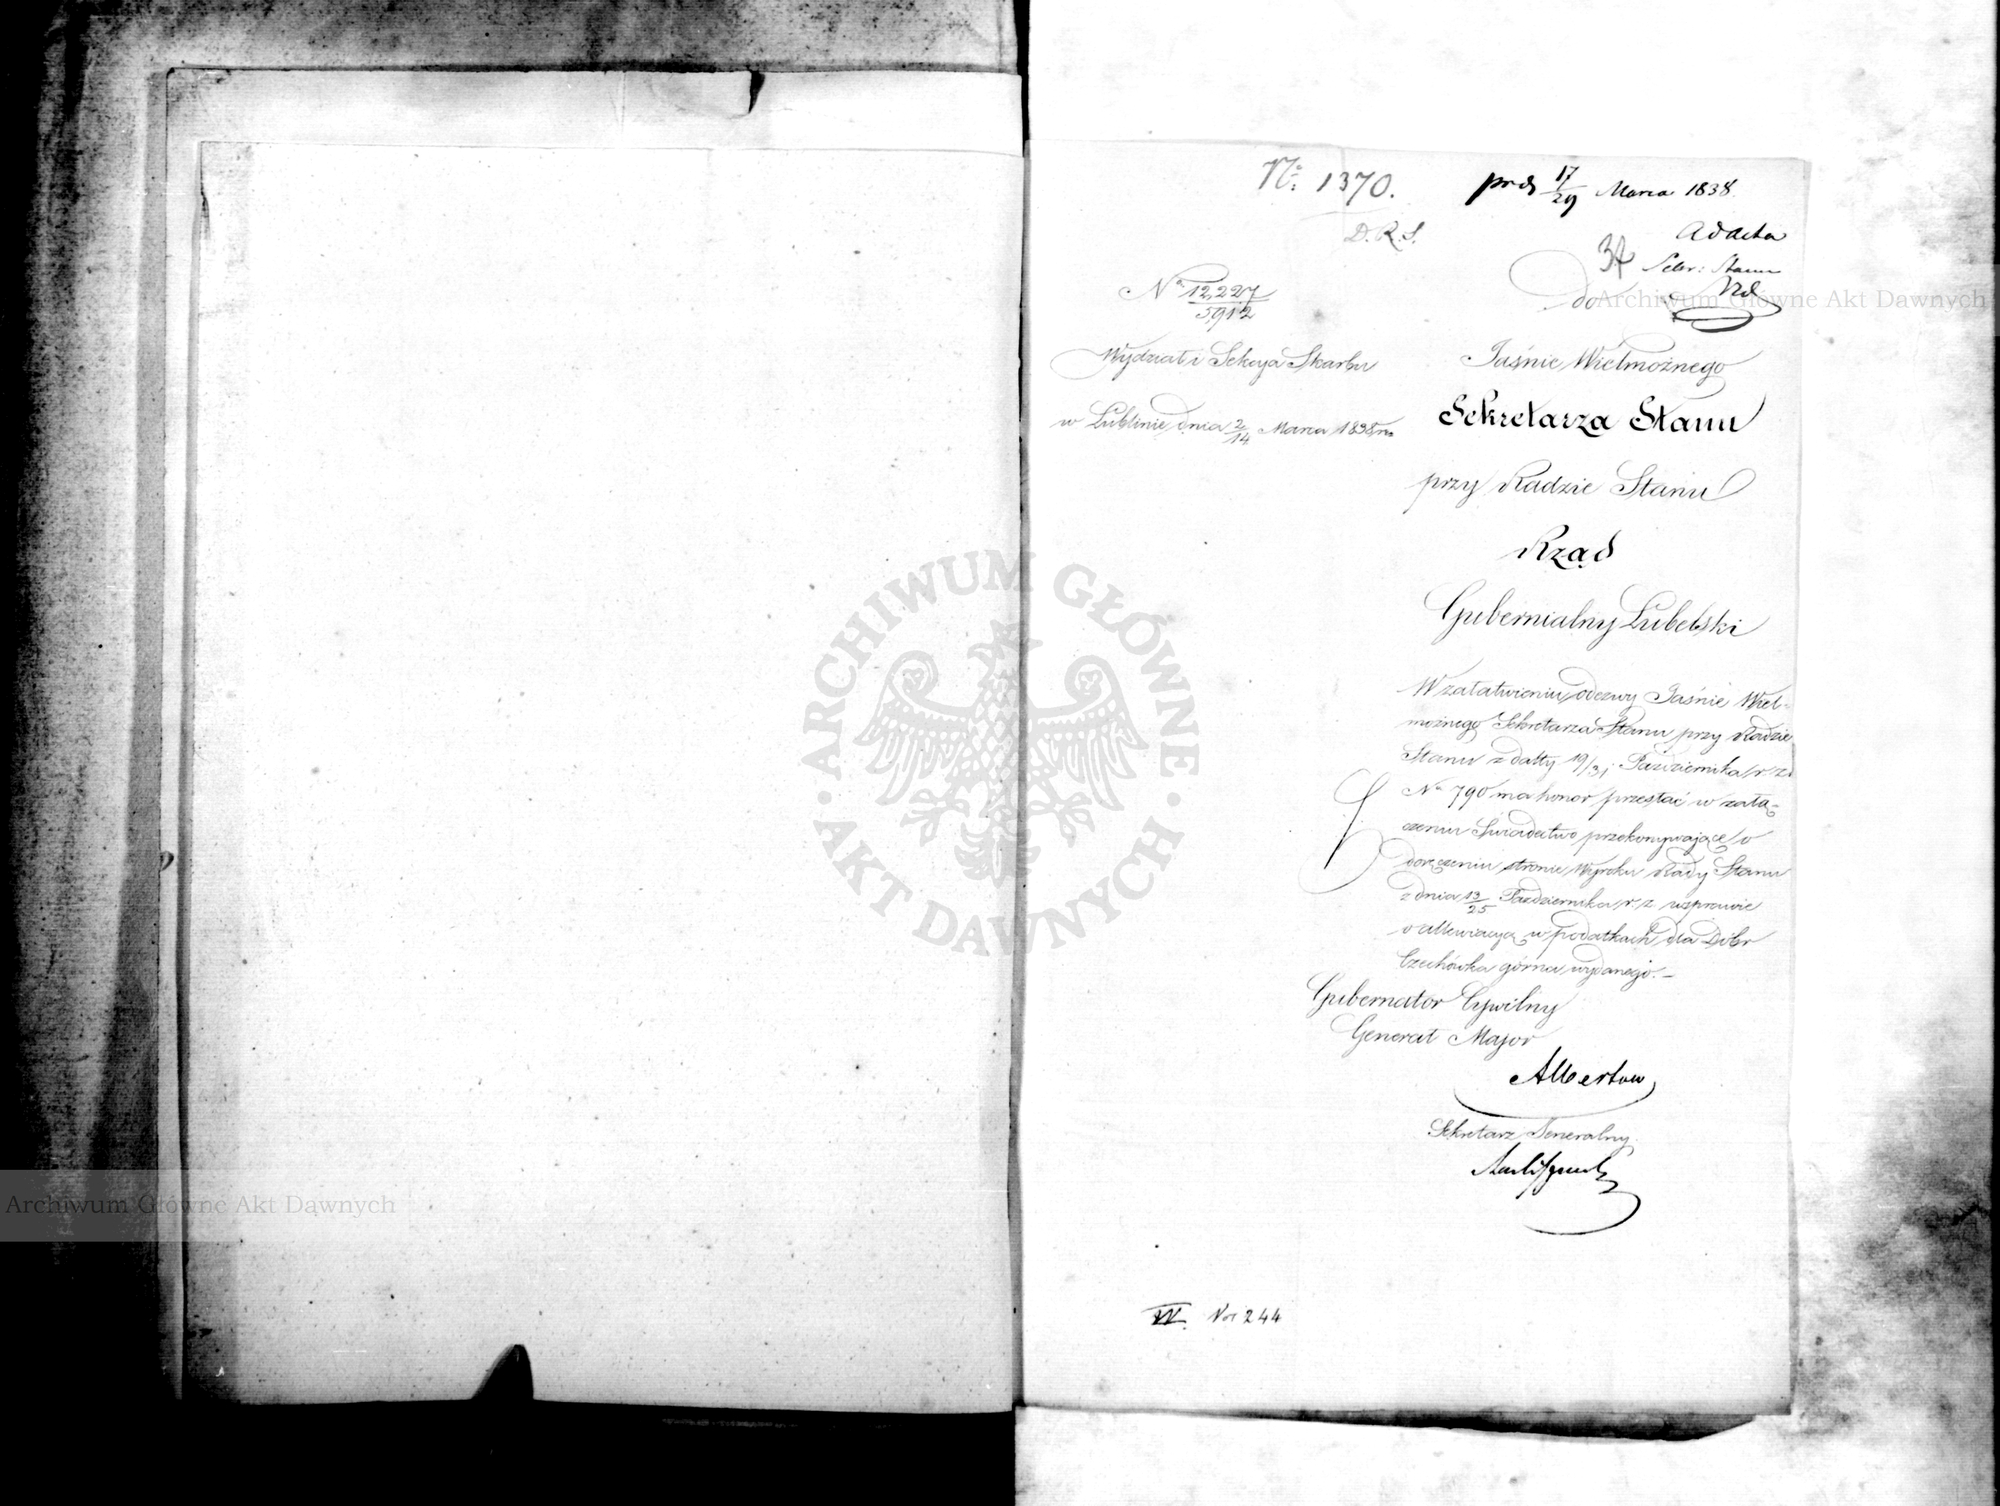 No 1370.
D. R. S.
17/29 Marca 1838.
Ad acta
34
Sekr: Stanu
do
No 12,227/5,912
Wydział i Sekcya Skarbu
w Lublinie dnia 2/14 Marca 1838 r.
Jaśnie Wielmożnego
Sekretarza Stanu
przy Radzie Stanu
Rząd
Gubernialny Lubelski
W załatwieniu odezwy Jaśnie Wiel-
możnego Sekretarza Stanu przy Radzie
Stanu z datty 19/31 Października r. z.
No 790 ma honor przesłać w załą-
czeniu Świadectwo przekonywające o
doręczeniu stronie Wyroku Rady Stanu
z dnia 13/25 Października r. z. w sprawie
o allewiacyą w podatkach dla Dóbr
Czechówka górna wydanego. –
Gubernator Cywilny
Generał Major
Albertow
Sekretarz Generalny
VI. No 244
ARCHIWUM GŁÓWNE AKT DAWNYCH
Archiwum Główne Akt Dawnych
Archiwum Główne Akt Dawnych